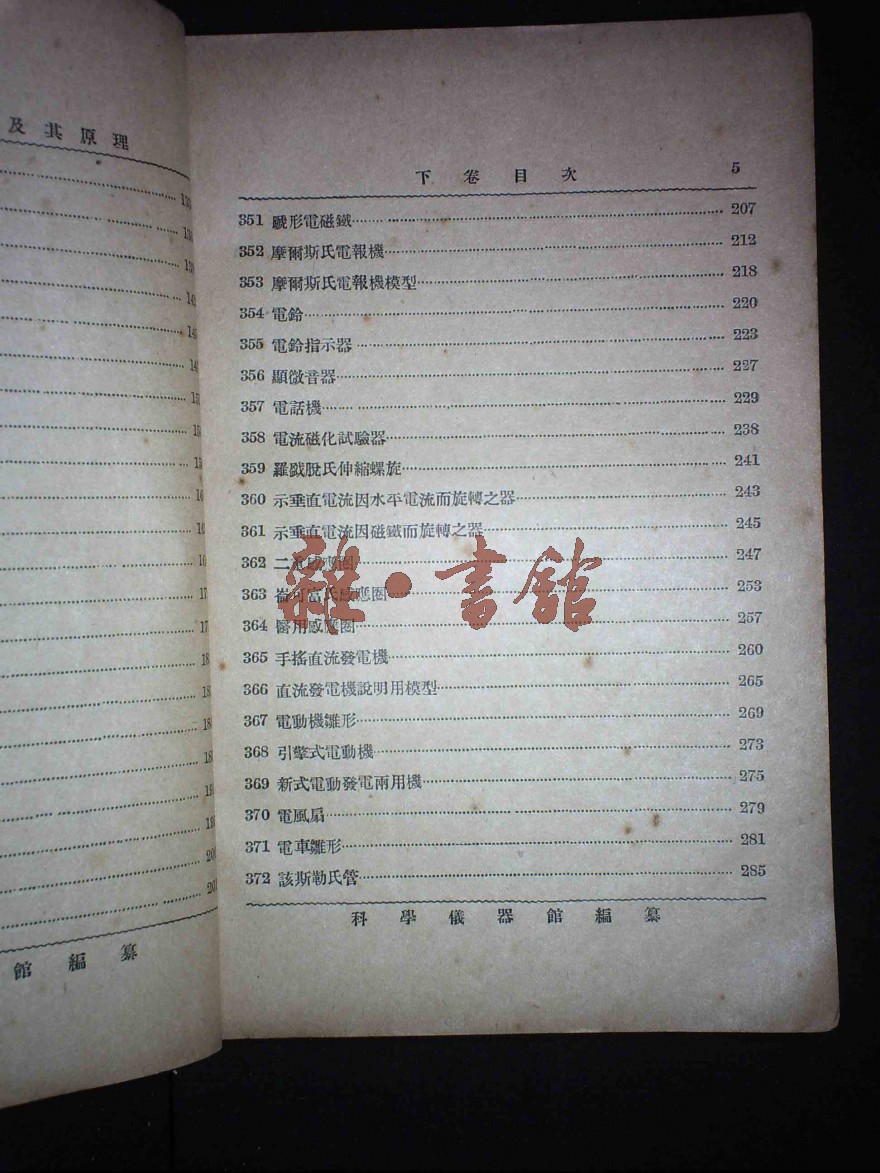 及其原理
館編纂
下卷目次 5
351 形電磁鐵 207
352 摩爾斯氏電報機 212
353 摩爾斯氏電報機模型 218
354 電鈴 220
355 電鈴指示器 223
356 顯微音器 227
357 電話機 229
358 電流磁化試驗器 238
359 羅戤脫氏伸縮螺旋 241
360 示垂直電流因水平電流而旋轉之器 243
361 示垂直電流因磁鐵而旋轉之器 245
362 二次感應圈 247
363 可當氏感應圈 253
364 醫用感應圈 257
365 手搖直流發電機 260
366 直流發電機說明用模型 265
367 電動機雛形 269
368 引擎式電動機 273
369 新式電動發電兩用機 275
370 電風扇 279
371 電車雛形 281
372 該斯勒氏管 285
科學儀器館編纂
雜·書館